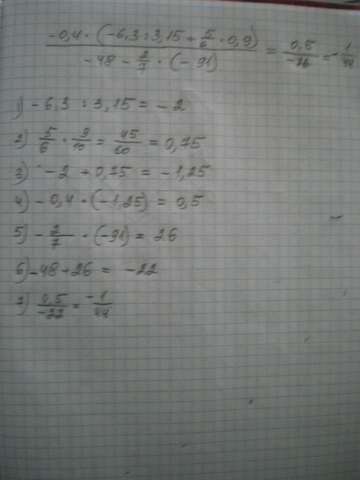 (-0,4 · (-6,3 : 3,15 + 5/6 · 0,9)) / (-48 - 2/7 · (-91)) = 0,5/-26 = -1/44
1) -6,3 : 3,15 = -2
2) 5/6 · 9/10 = 45/60 = 0,75
3) -2 + 0,75 = -1,25
4) -0,4 · (-1,25) = 0,5
5) -2/7 · (-91) = 26
6) -48 + 26 = -22
7) 0,5/-22 = -1/44